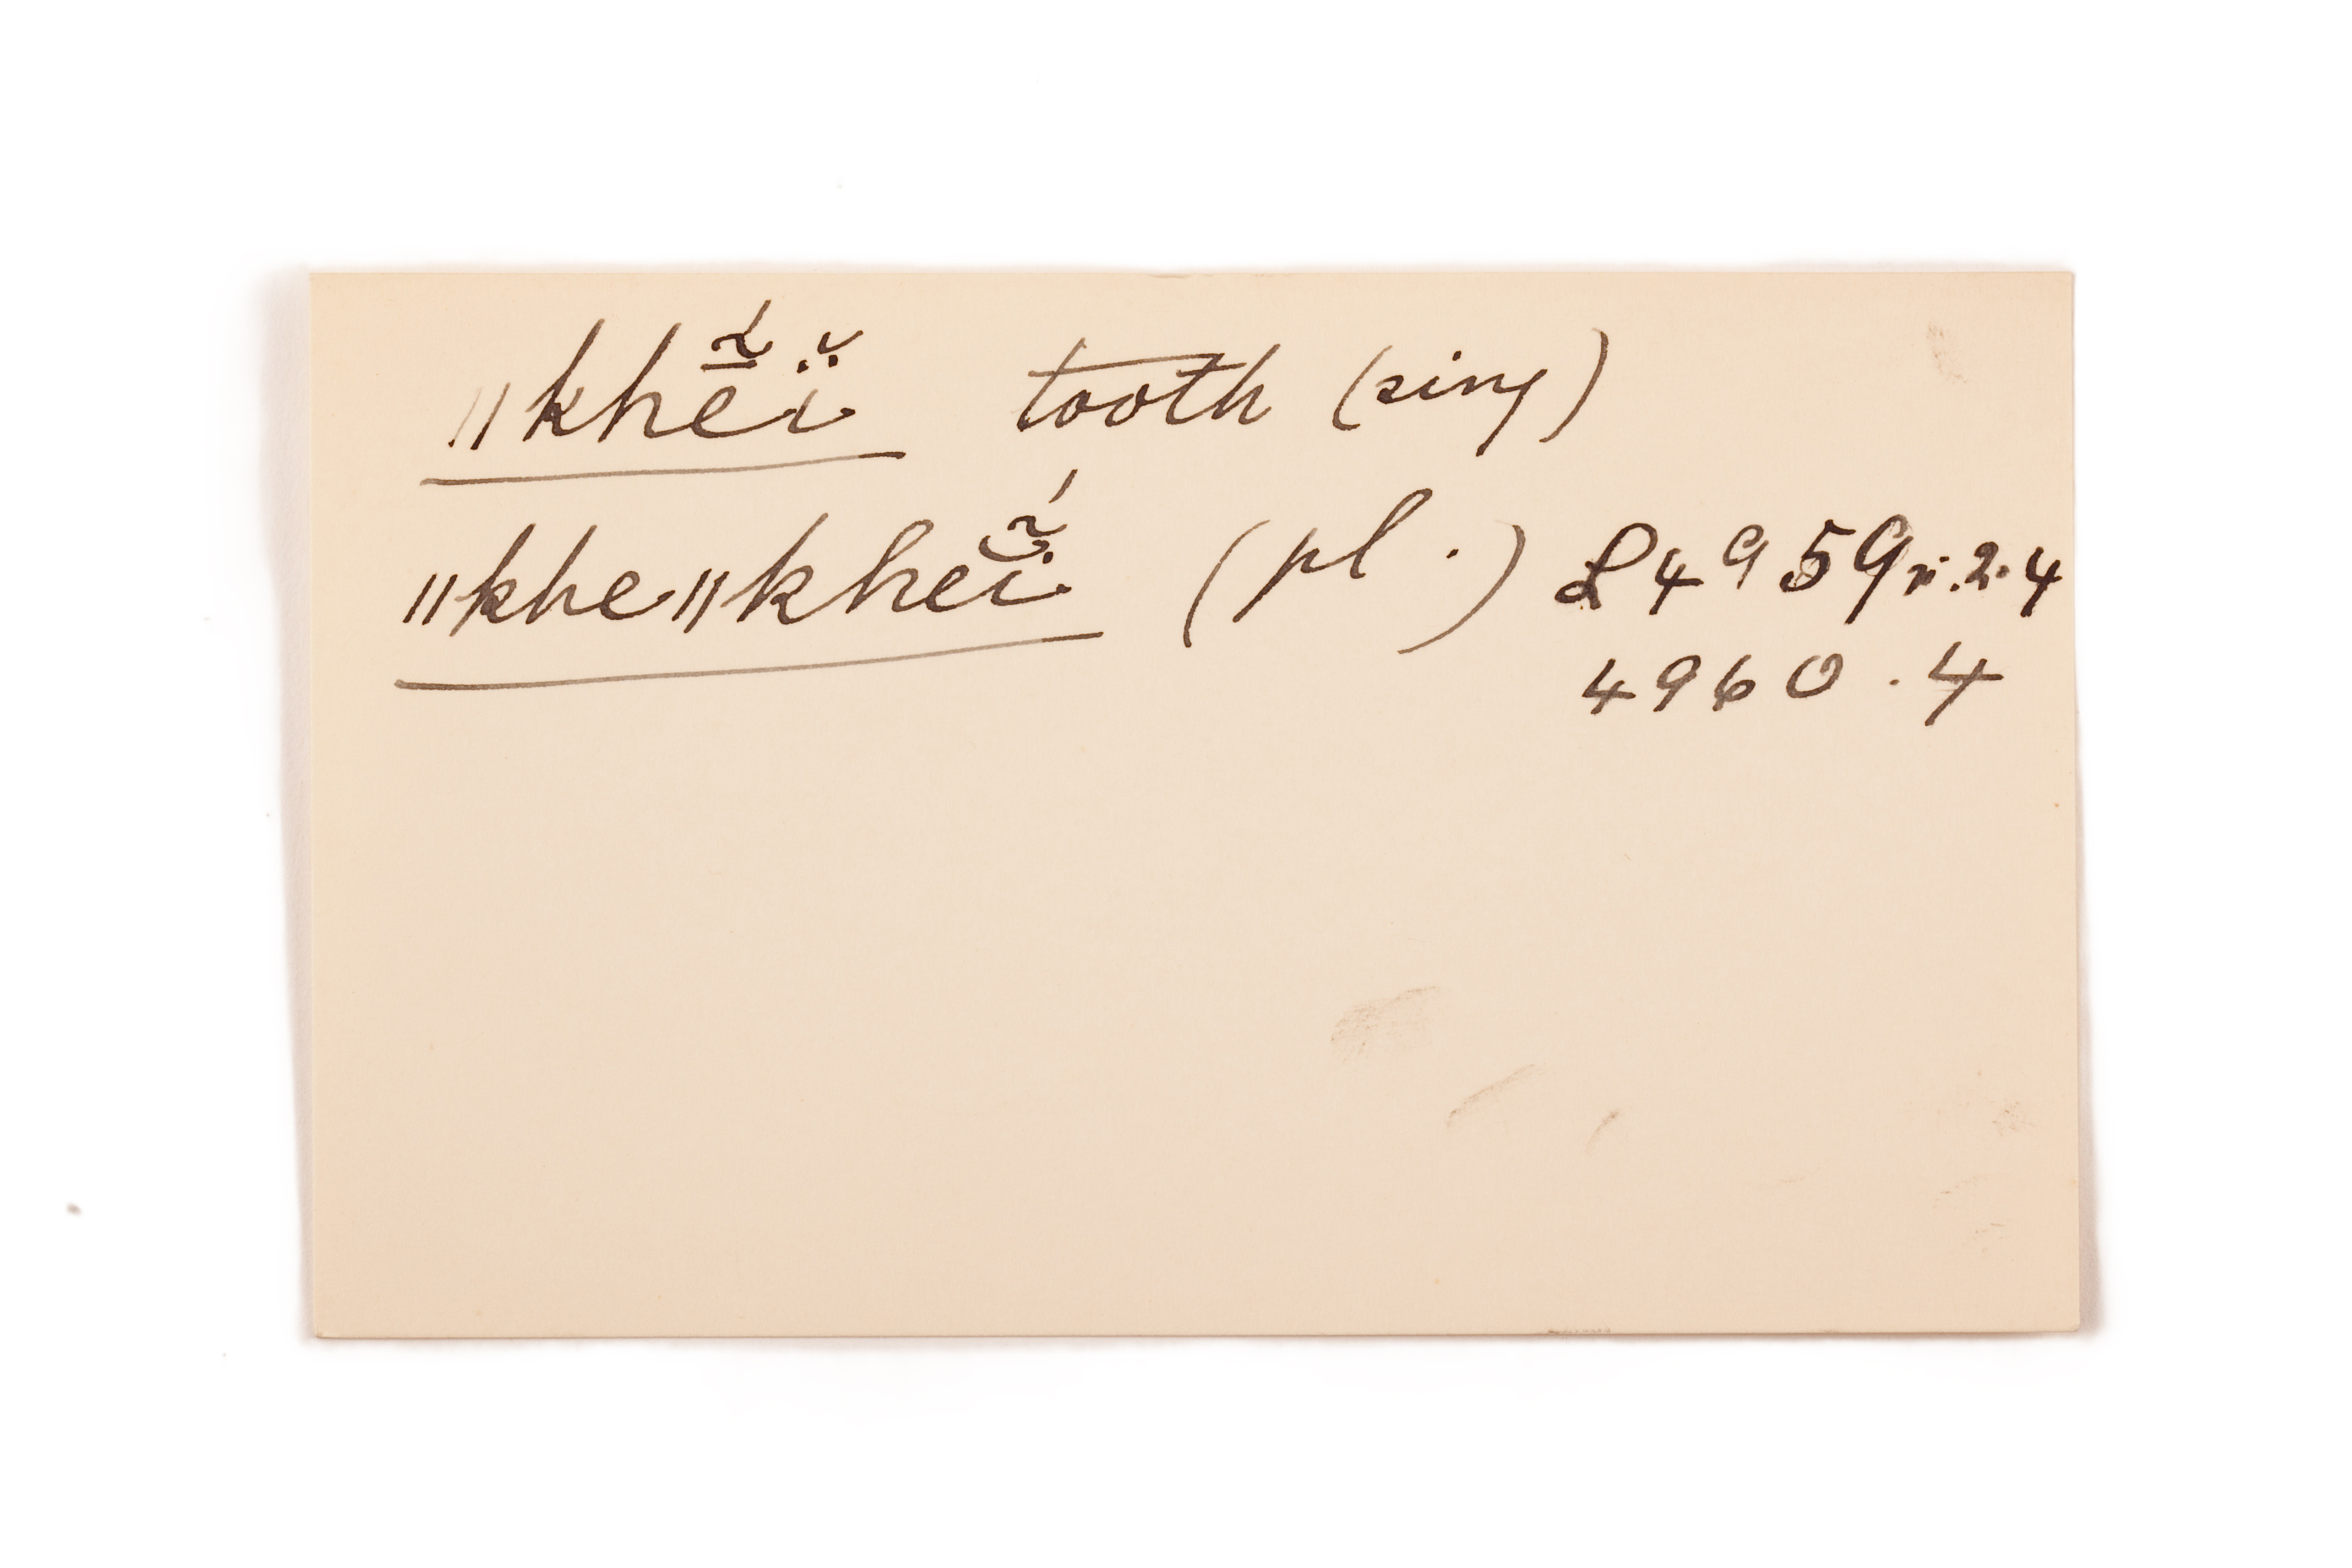 ǁkhḗ̃ï̆ tooth (sing)
ǁkheǁkheḯ̃̆ (pl.) L4959r.2.4
4960.4